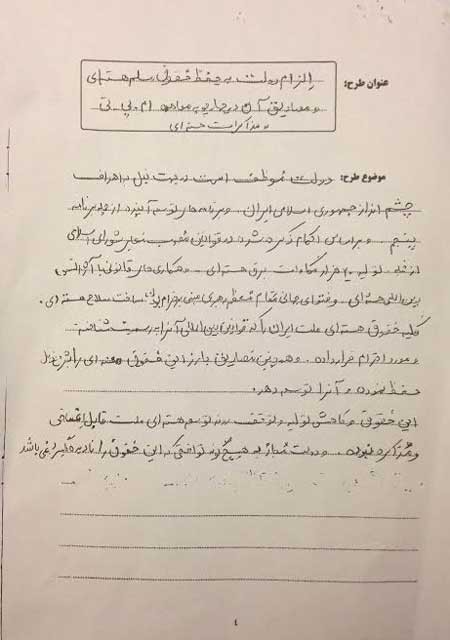 عنوان طرح: الزام دولت به حفظ حقوق مسلم هسته ای
و مصادیق آن در چارچوب معاهده ام.پی.تی
و مذاکرات هسته ای
موضوع طرح: دولت موظف است در جهت نیل به اهداف
چشم انداز جمهوری اسلامی ایران و برنامه های توسعه آینده از جمله برنامه
پنجم و بر اساس احکام ذکر شده در قوانین مصوب مجلس شورای اسلامی
از جمله تولید ۲۰ هزار مگاوات برق هسته ای و همکاری های قانونی با آژانس
بین المللی هسته ای و فتوای مقام معظم رهبری مبنی بر حرام بودن ساخت سلاح هسته ای.
کلیه حقوق هسته ای ملت ایران را که قوانین بین المللی آنرا به رسمیت شناخته
و مورد احترام قرار داده و همچنین مصادیق بارز این حقوق هسته ای را
حفظ نموده و آنرا توسعه دهد
این حقوق و کاهش تولید و توقف روند توسعه هسته ای ملت قابل اغماض
و مذاکره نبوده و دولت مجاز به هیچگونه توافقی که این حقوق را نادیده بگیرد نمی باشد
٤